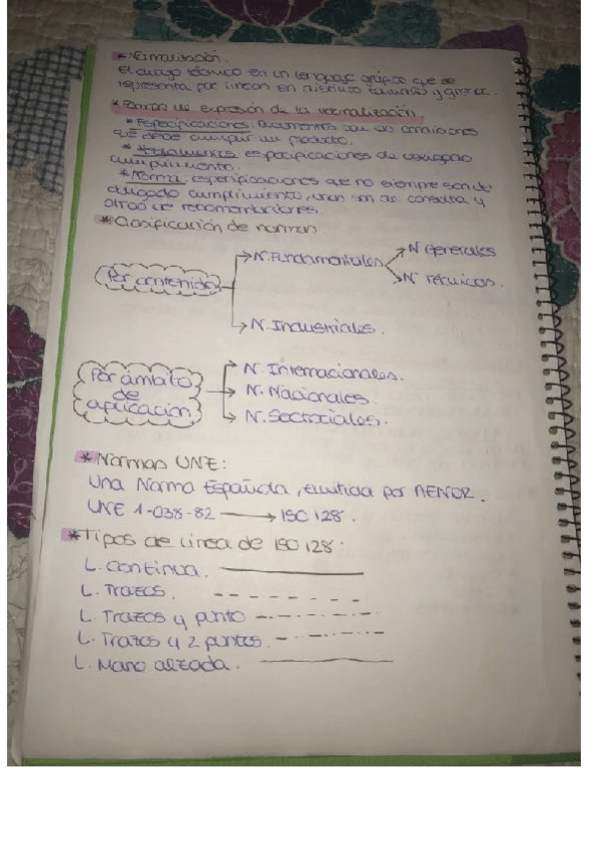 * Normalización.
El dibujo técnico es un lenguaje gráfico que se
representa por líneas en distinto tamaño y grosor.
* Formas de expresión de la normalización
* Especificaciones: documentos con las condiciones
que debe cumplir un producto.
* Reglamentos: especificaciones de obligado
cumplimiento.
* Norma: especificaciones que no siempre son de
obligado cumplimiento, unas son de consulta y
otras de recomendaciones.
* Clasificación de normas
Por contenido
→ N. Fundamentales
→ N Generales
→ N Técnicas.
→ N. Industriales.
Por ámbito
de
aplicación
→ N. Internacionales.
→ N. Nacionales.
→ N. Sectoriales.
* Normas UNE:
Una Norma Española, emitida por AENOR.
UNE 1-038-82 → ISO 128.
* Tipos de línea de ISO 128:
L. continua.
L. Trazos.
L. Trazos y punto
L. Trazos y 2 puntos.
L. Mano alzada.